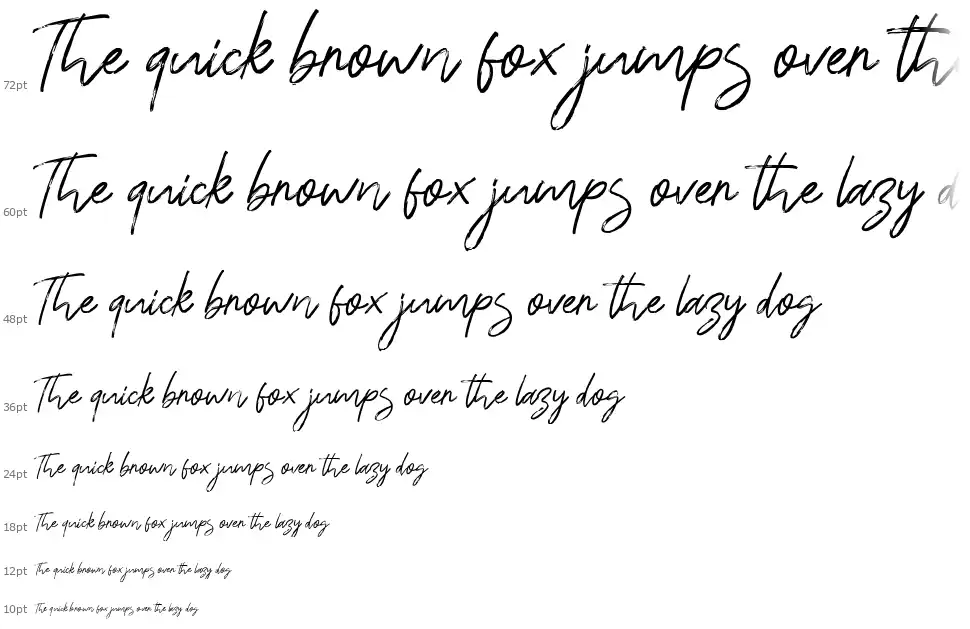 72pt The quick brown fox jumps over th
60pt The quick brown fox jumps over the lazy d
48pt The quick brown fox jumps over the lazy dog
36pt The quick brown fox jumps over the lazy dog
24pt The quick brown fox jumps over the lazy dog
18pt The quick brown fox jumps over the lazy dog
12pt The quick brown fox jumps over the lazy dog
10pt The quick brown fox jumps over the lazy dog